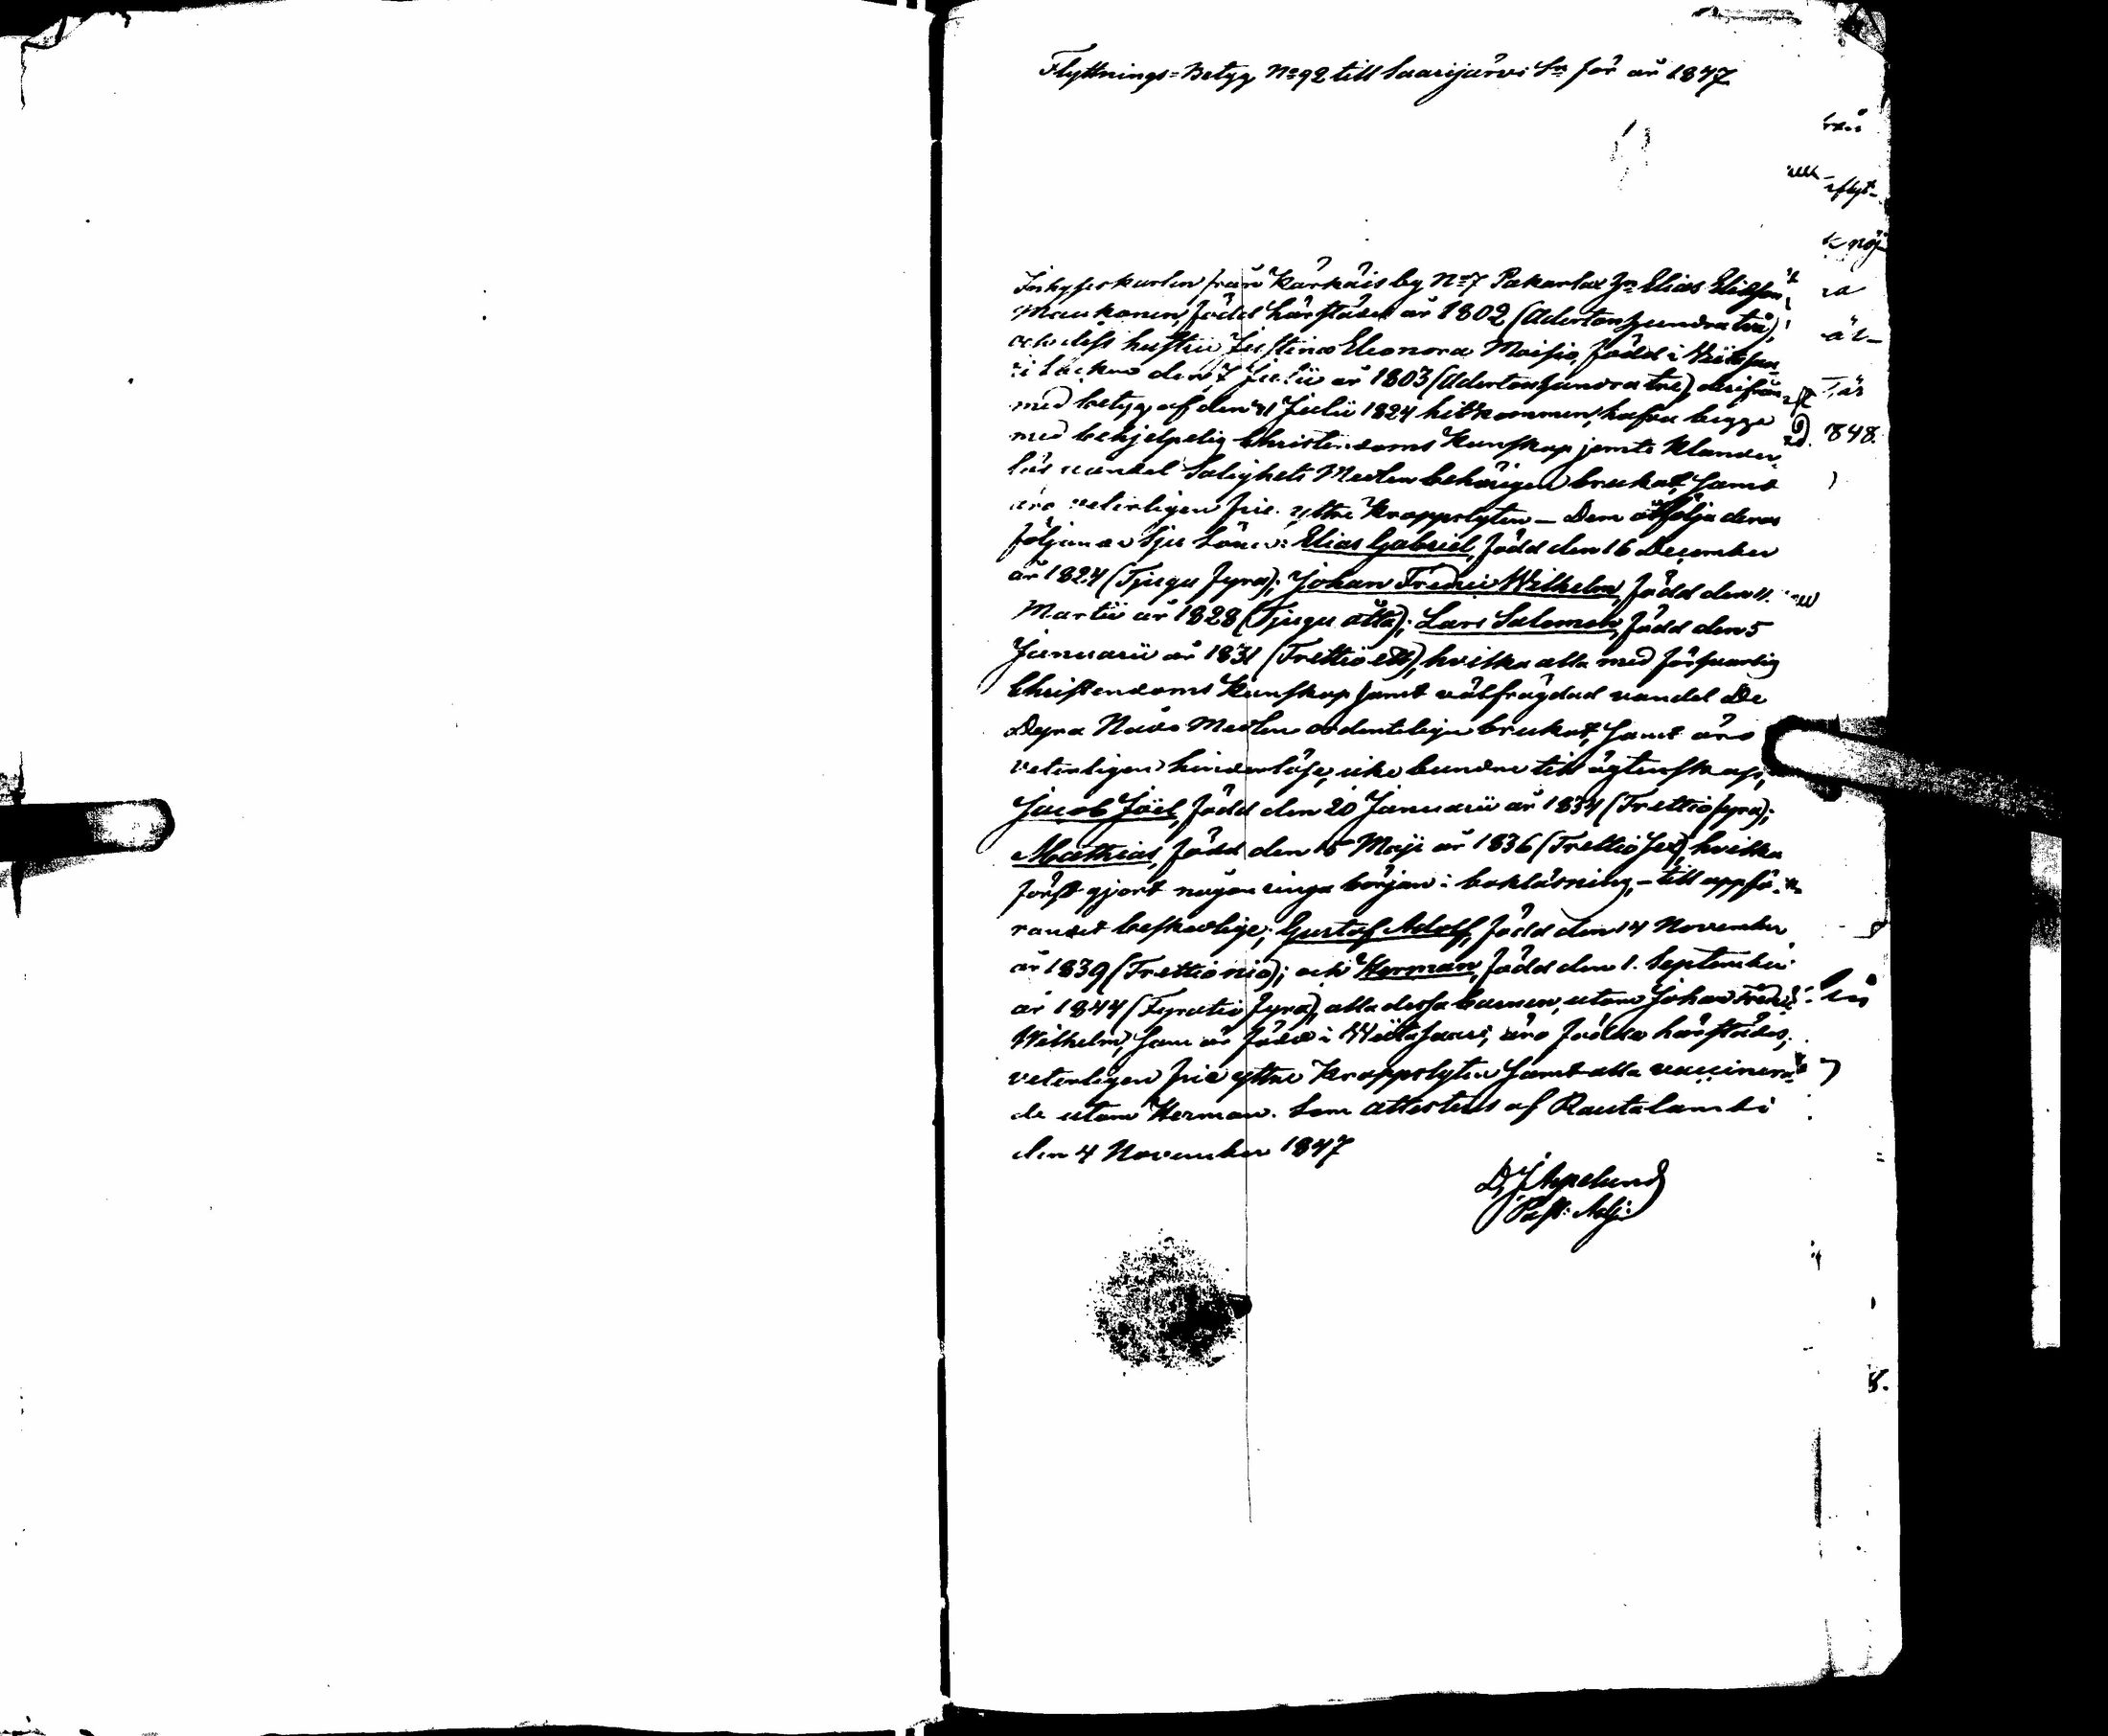 Flyttnings=Betyg No 92 till Saarijärvi Sn för år 1847
Inhyseskarlen från Kärkäis by No 7 Elias Eliasson
Maukonen, född härstädes år 1802 (Adertonhundra två),
och dess hustru Justina Eleonora Maisio, född i
den 7 Julii år 1803 (Adertonhundra tre), derifrån
med betyg af den 31 Julii 1824 hitkommen, hafva begge
med behjelpelig Christendoms Kunskap jemte Klander-
lös vandel Salighets Medlen behörigen brukat, samt
äro veterligen frie yttre Kroppslyten – Dem åtfölja deras
följande sju Söner: Elias Gabriel, född den 16 December
år 1824 (Tjugu fyra); Johan Fredric Wilhelm, född den 11.
Martii år 1828 (Tjugu åtta); Lars Salomon, född den 5
Januarii år 1831 (Trettio ett), hvilka alla med försvarlig
Christendoms Kunskap samt välfrägdad vandel De
Dyra Nåde Medlen ordenteligen brukat, samt äro
veterligen hinderlöse, icke bundne till ägtenskap;
Jacob Joel, född den 20 Januarii år 1834 (Trettio fyra);
Mathias, född den 15 Maji år 1836 (Trettio sex), hvilka
först gjort någon ringa början i bokläsning, – till uppfö-
randet beskedlige; Gustaf Adolf, född den 14 November
år 1839 (Trettio nio); och Herman, född den 1. September
år 1844 (Fyratio fyra), alla dessa barnen, utom Johan Fredric
Wilhelm, som är född i Wiitasaari, äro födda härstädes,
veterligen frie yttre Kroppslyten samt alla vaccinera-
de utom Herman. Som attesteras af Rautalambi
den 4 November 1847
D. J. Aspelund
Past: Adj:
848.